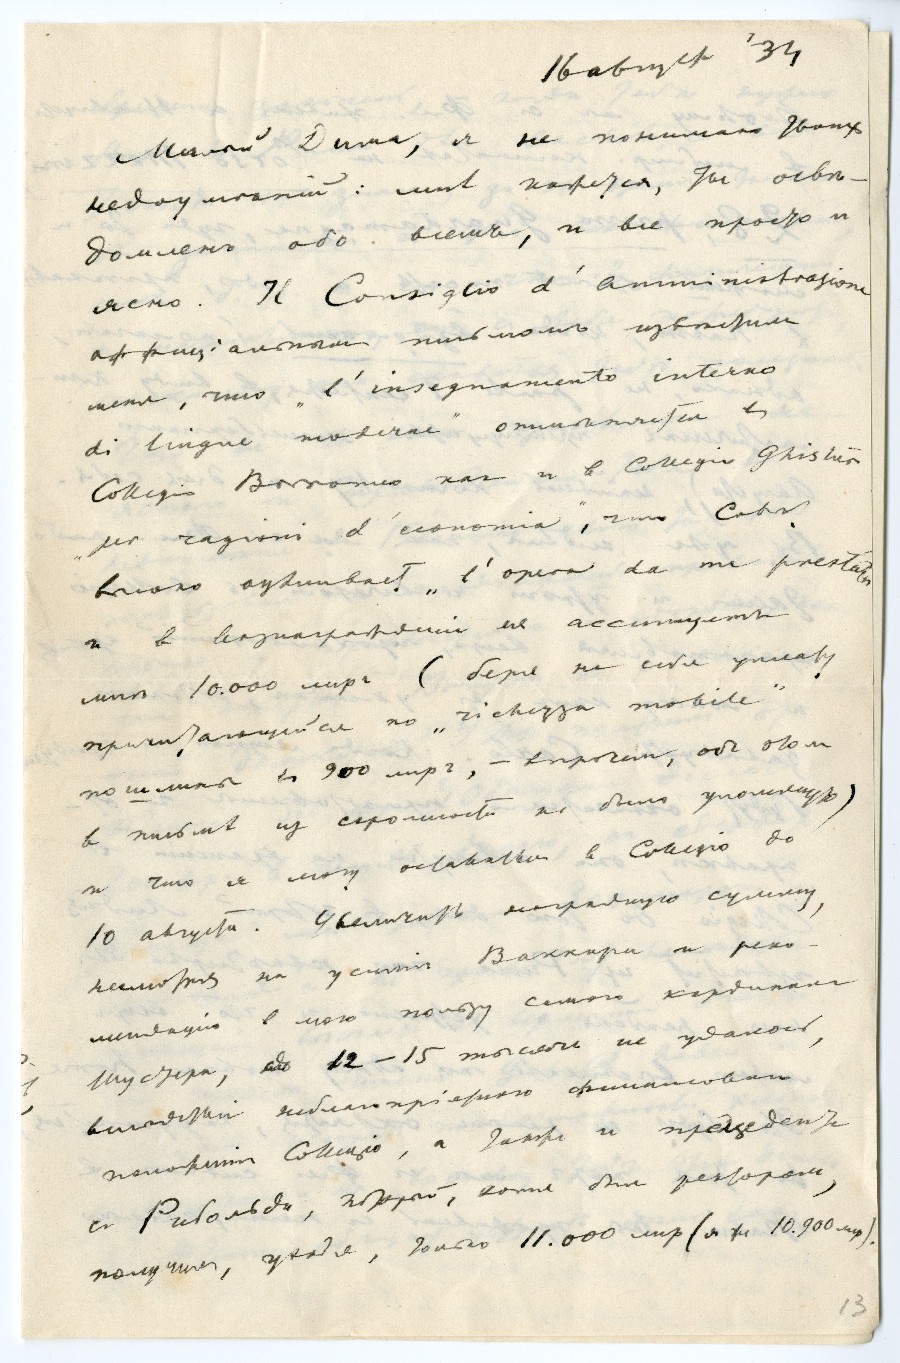 16 август '34
Милый Дима, я не понимаю твоих
недоуменiй: мнѣ кажется, ты освѣ-
домленъ обо всемъ, и все просто и
ясно. Il Consiglio d'Amministrazione
оффицiальным письмомъ извѣстил
меня, что „l'insegnamento interno
di lingue moderne" отменяется въ
Collegio Borromeo как и в Collegio Ghislieri
„per ragioni d'economia", что Совѣт
высоко оцѣнивает „l'opera da me prestata"
и в вознагражденiи ея ассигнует
мнѣ 10.000 лиръ (беря на себя уплату
причитающейся по „richezza mobile"
пошлины въ 900 лиръ, — впрочем, об этом
в письмѣ из скромности не было упомянуто)
и что я могу оставаться в Collegio до
10 августа. Увеличить наградную сумму,
несмотря на усилiя Ваккари и реко-
мендацiю в мою пользу самого кардинала
Шустера, до 12–15 тысячъ не удалось,
вслѣдствiй неблагопрiятнаго финансоваго
положенiя Collegio, а также и прецедента
с Рибольди, который, хотя был ректором,
получил, уходя, только 11.000 лир (я же 10.900 лир).
13